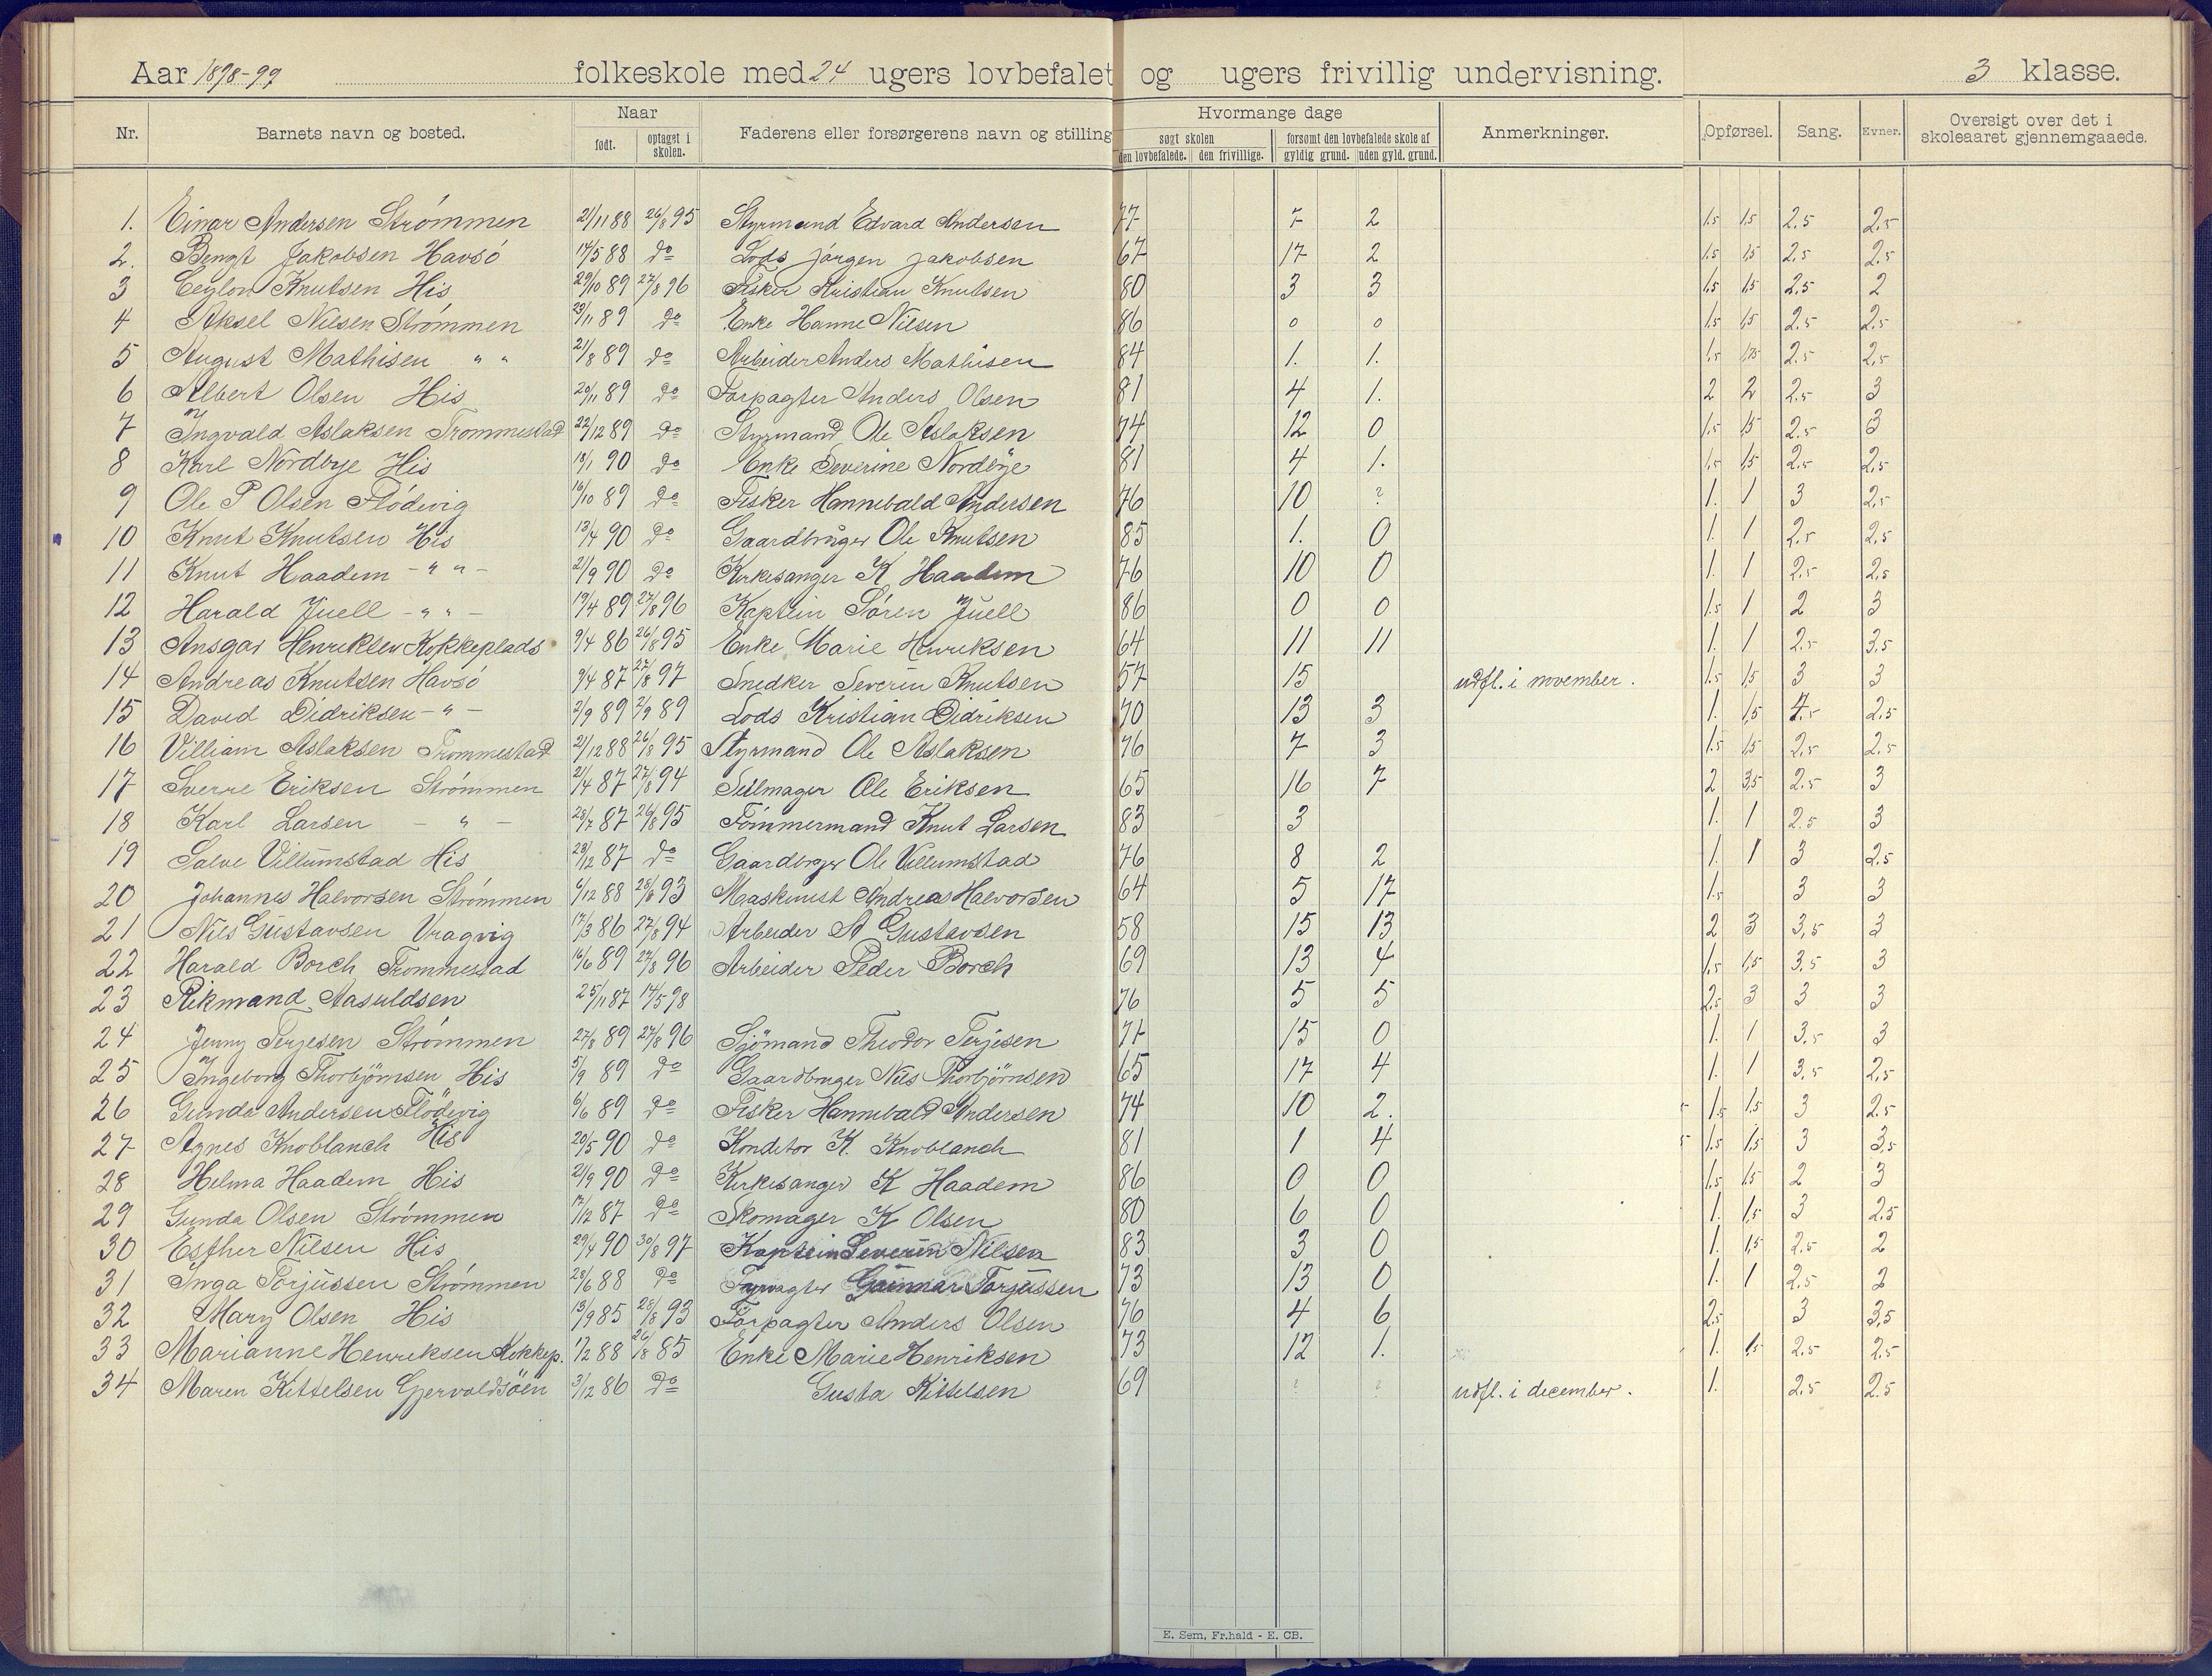 Aar 1898-99 folkeskole med 24 ugers lovbefalet og ugers frivillig undervisning. 3 klasse.
Nr. Barnets navn og bosted. Naar født. optaget i skolen. Faderens eller forsørgerens navn og stilling Hvormange dage søgt skolen den lovbefalede. den frivillige. forsømt den lovbefalede skole af gyldig grund. uden gyld. grund. Anmerkninger. Opførsel. Sang. Evner. Oversigt over det i skoleaaret gjennemgaaede.
1. Einar Andersen Strømmen 21/11 88 26/8 95 Styrmand Edvard Andersen 77 7 2 1.5 1.5 2.5 2.5
2. Bengt Jakobsen Havsö 14/5 88 do Lods Jørgen Jakobsen 67 17 2 1.5 1.5 2.5 2.5
3 Ceylon Knutsen His 29/10 89 27/8 96 Fisker Kristian Knutsen 80 3 3 1.5 1.5 2.5 2
4 Aksel Nilsen Strömmen 29/11 89 do Enke Hanne Nilsen 86 0 0 1.5 1.5 2.5 2.5
5 August Mathisen " " 21/8 89 do Arbeider Anders Mathisen 84 1. 1. 1.5 1.75 2.5 2.5
6 Albert Olsen His 20/11 89 do Forpagter Anders Olsen 81 4 1. 2 2 2.5 3
7 Ingvald Aslaksen Trommestad 22/12 89 do Styrmand Ole Aslaksen 74 12 0 1.5 1.5 2.5 3
8 Karl Nordbye His 13/1 90 do Enke Severine Nordbye 81 4 1. 1.5 1.5 2.5 2.5
9 Ole P Olsen Flödevig 16/10 89 do Fisker Hannibald Andersen 76 10 ? 1. 1 3 2.5
10 Knut Knutsen His 13/4 90 do Gaardbruger Ole Knutsen 85 1. 0 1. 1 2.5 2.5
11 Knut Haadem - " " - 21/9 90 do Kirkesanger K Haadem 76 10 0 1. 1 2.5 2.5
12 Harald Juell - " " - 19/4 89 27/8 96 Kaptein Søren Juell 86 0 0 1.5 1 2 3
13 Ansgar Henriksen Kokkeplads 9/4 86 26/8 95 Enke Marie Henriksen 64 11 11 1. 1 2.5 3.5
14 Andreas Knutsen Havsö 9/4 87 27/8 97 Snedker Severin Knutsen 57 15 udfl. i november. 1.5 1.5 3 3
15 David Didriksen - " - 2/9 89 2/9 89 Lods Kristian Didriksen 70 13 3 1. 1.5 4.5 2.5
16 Villiam Aslaksen Trommestad 21/12 88 26/8 95 Styrmand Ole Aslaksen 76 7 3 1.5 1.5 2.5 2.5
17 Sverre Eriksen Strømmen 21/4 87 27/8 94 Seilmager Ole Eriksen 65 16 7 2 3.5 2.5 3
18 Karl Larsen - " - 28/7 87 26/8 95 Tømmermand Knut Larsen 83 3 1. 1 2.5 3
19 Salve Villumstad His 28/12 87 do Gaardbrger Ole Villumstad 76 8 2 1. 1 3 2.5
20 Johannes Halvorsen Strömmen 6/12 88 28/8 93 Maaskinist Andreas Halvorsen 64 5 17 1.5 3 3
21 Nils Gustavsen Vragvig 17/3 86 27/8 94 Arbeider A Gustavsen 58 15 13 2 3 3.5 3
22 Harald Borch Trommestad 16/6 89 27/8 96 Arbeider Peder Borch 69 13 4 1.5 1.5 3.5 3
23 Rikmand Aasuldsen 25/11 87 14/5 98 76 5 5 2.5 3 3 3
24 Jenny Terjesen Strömmen 27/8 89 27/8 96 Sjömand Theodor Terjesen 71 15 0 1. 1 3.5 3
25 Ingeborg Thorbjörnsen His 5/9 89 do Gaardbruger Nils Thorbjörnsen 65 17 4 1. 1 3.5 2.5
26 Gunda Andersen Flödevig 6/6 89 do Fisker Hannibald Andersen 74 10 2. 1.5 1.5 3 2.5
27 Agnes Knoblauch His 20/5 90 do Konditor K. Knoblauch 81 1 4 1.5 1.5 3 3.5
28 Helma Haadem His 21/9 90 do Kirkesanger K Haadem 86 0 0 1.5 1.5 2 3
29 Gunda Olsen Strömmen 17/12 87 do Skomager K Olsen 80 6 0 1. 1.5 3 2.5
30 Esther Nilsen His 29/4 90 30/8 97 Kaptein Severin Nilsen 83 3 0 1. 1.5 2.5 2
31 Inga Torjussen Strömmen 28/6 88 do Forpagter Gunnar Torjussen 73 13 0 1. 1 2.5 2
32 Mary Olsen His 13/9 85 28/8 93 Forpagter Anders Olsen 76 4 6 2.5 3 3.5
33 Marianne Henriksen Kokkep. 1/2 88 26/8 85 Enke Marie Henriksen 73 12 1. 1. 1.5 2.5 2.5
34 Maren Kittelsen Gjervoldsöen 3/12 86 do Gusta Kittelsen 69 ? ? udfl. i december. 1. 2.5 2.5
E. Sem, Fr.hald - E. CB.